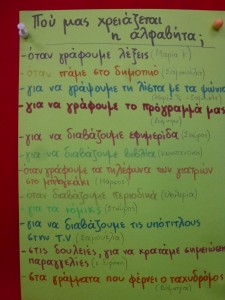 Πού μας χρειάζεται
η αλφαβήτα;
-όταν γράφουμε λέξεις (Μαρία)
-όταν πάμε στο δημοτικό
-για να γράψουμε τη λίστα με τα ψώνια
-για να γράφουμε το πρόγραμμά μας
-για να διαβάζουμε εφημερίδα (Σταύρος)
-για να διαβάζουμε βιβλία
-όταν γράφουμε τα τηλέφωνα των γιατρών
στο μπλοκάκι (Μαρία)
-όταν διαβάζουμε περιοδικά
-για τα κόμικς
-για να διαβάζουμε τις υπότιτλους
στην T.V
-στις δουλειές, για να κρατάμε σημειώσεις
παραγγελίες
-στα γράμματα που φέρνει ο ταχυδρόμος